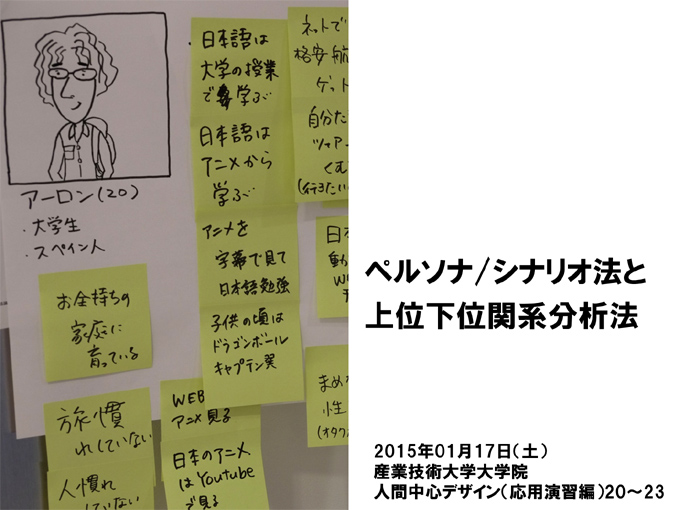 アーロン(20)
・大学生
・スペイン人
お金持ちの
家庭に
育っている
旅慣
れしていない
人慣れ
していない
日本語は
大学の授業
で学ぶ
日本語は
アニメから
学ぶ
アニメを
字幕で見て
日本語勉強
子供の頃は
ドラゴンボール
キャプテン翼
WEB
アニメ見る
日本のアニメ
はYoutube
で見る
ネットで
格安航
ゲット
自分た
ツアー
くむ
(行きたい
日
動
W
まめ
性
(オタク
ペルソナ/シナリオ法と
上位下位関係分析法
2015年01月17日(土)
産業技術大学大学院
人間中心デザイン(応用演習編)20~23